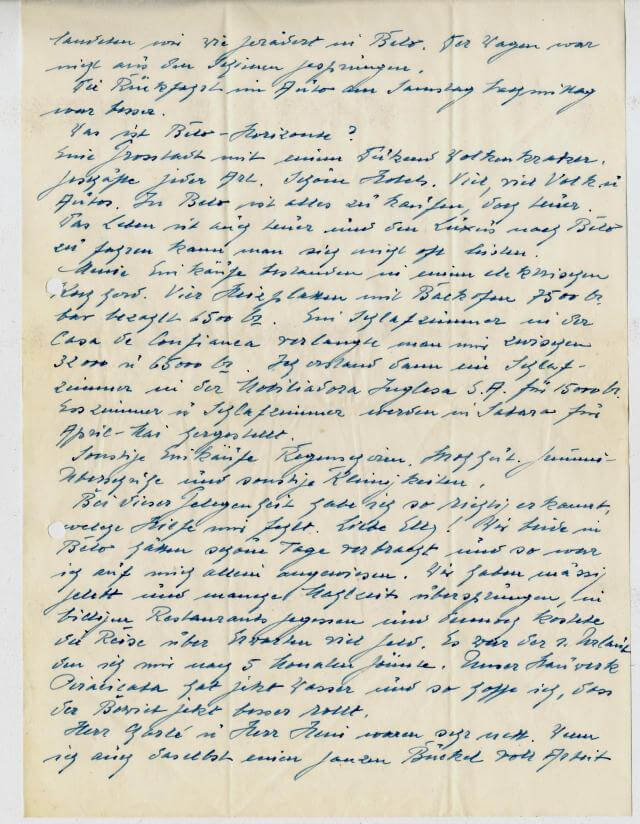 landeten wir wie gerädert in Belo. Der Wagen war
nicht aus den Schienen gesprungen.
Die Rückfahrt im Auto am Samstag Nachmittag
war besser.
Was ist Belo-Horizonte?
Eine Grosstadt mit einem Dutzend Wolkenkratzer.
Geschäfte jeder Art. Schöne Hotels. Viel, viel Volk u
Autos. In Belo ist alles zu kaufen, doch teuer.
Das Leben ist auch teuer und den Luxus nach Belo
zu fahren kann man sich nicht oft leisten.
Meine Einkäufe bestanden in einem elektrischen
Kochherd. Vier Heizplatten mit Backofen 7500 Cr.
bar bezahlt 6500 Cr. Ein Schlafzimmer in der
Casa de Confianca verlangte man mir zwischen
32000 u 65000 Cr. Ich erstand dann ein Schlaf-
zimmer in der Mobiliadora Inglesa S.A. für 15000 Cr.
Esszimmer u Schlafzimmer werden in Sabara für
April-Mai hergestellt.
Sonstige Einkäufe Regenschirm, Gummi-
überschuhe und sonstige Kleinigkeiten.
Bei dieser Gelegenheit habe ich so richtig erkannt,
welche Hilfe mir fehlt. Liebe Elly! Wir beide in
Belo hätten schöne Tage verbracht und so war
ich auf mich allein angewiesen. Wir haben mässig
gelebt und manche Mahlzeit übersprungen, in
billigen Restaurants gegessen und dennoch kostete
die Reise über Erwarten viel Geld. Es war der 2. Urlaub
den ich mir nach 5 Monaten gönnte. Unser Hauwerk
Piracicaba hat jetzt Wasser und so hoffe ich, dass
der Betrieb jetzt besser rollt.
Herr u Herr Heni waren sehr nett. Wenn
ich auch daselbst einen ganzen Buckel voll Arbeit